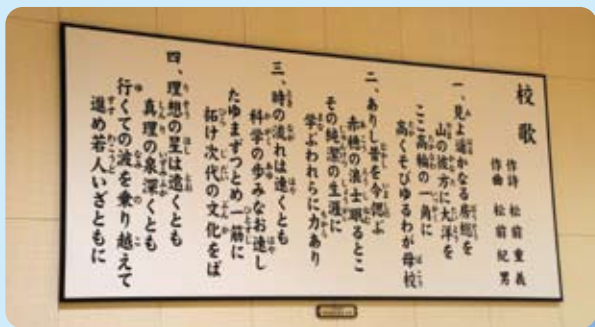 校歌
作詩 松前重義
作曲 松前紀男
一、見よ遥かなる房総を
山の彼方に大洋を
ここ高輪の一角に
高くそびゆるわが母校
二、ありし昔を今偲ぶ
赤穂の浪士眠るとこ
その純潔の生涯に
学ぶわれらに力あり
三、時の流れは速くとも
科学の歩みなお速し
たゆまずつとめ一筋に
拓け次代の文化をば
四、理想の星は遠くとも
真理の泉深くとも
行くての波を乗り越えて
進め若人いざともに